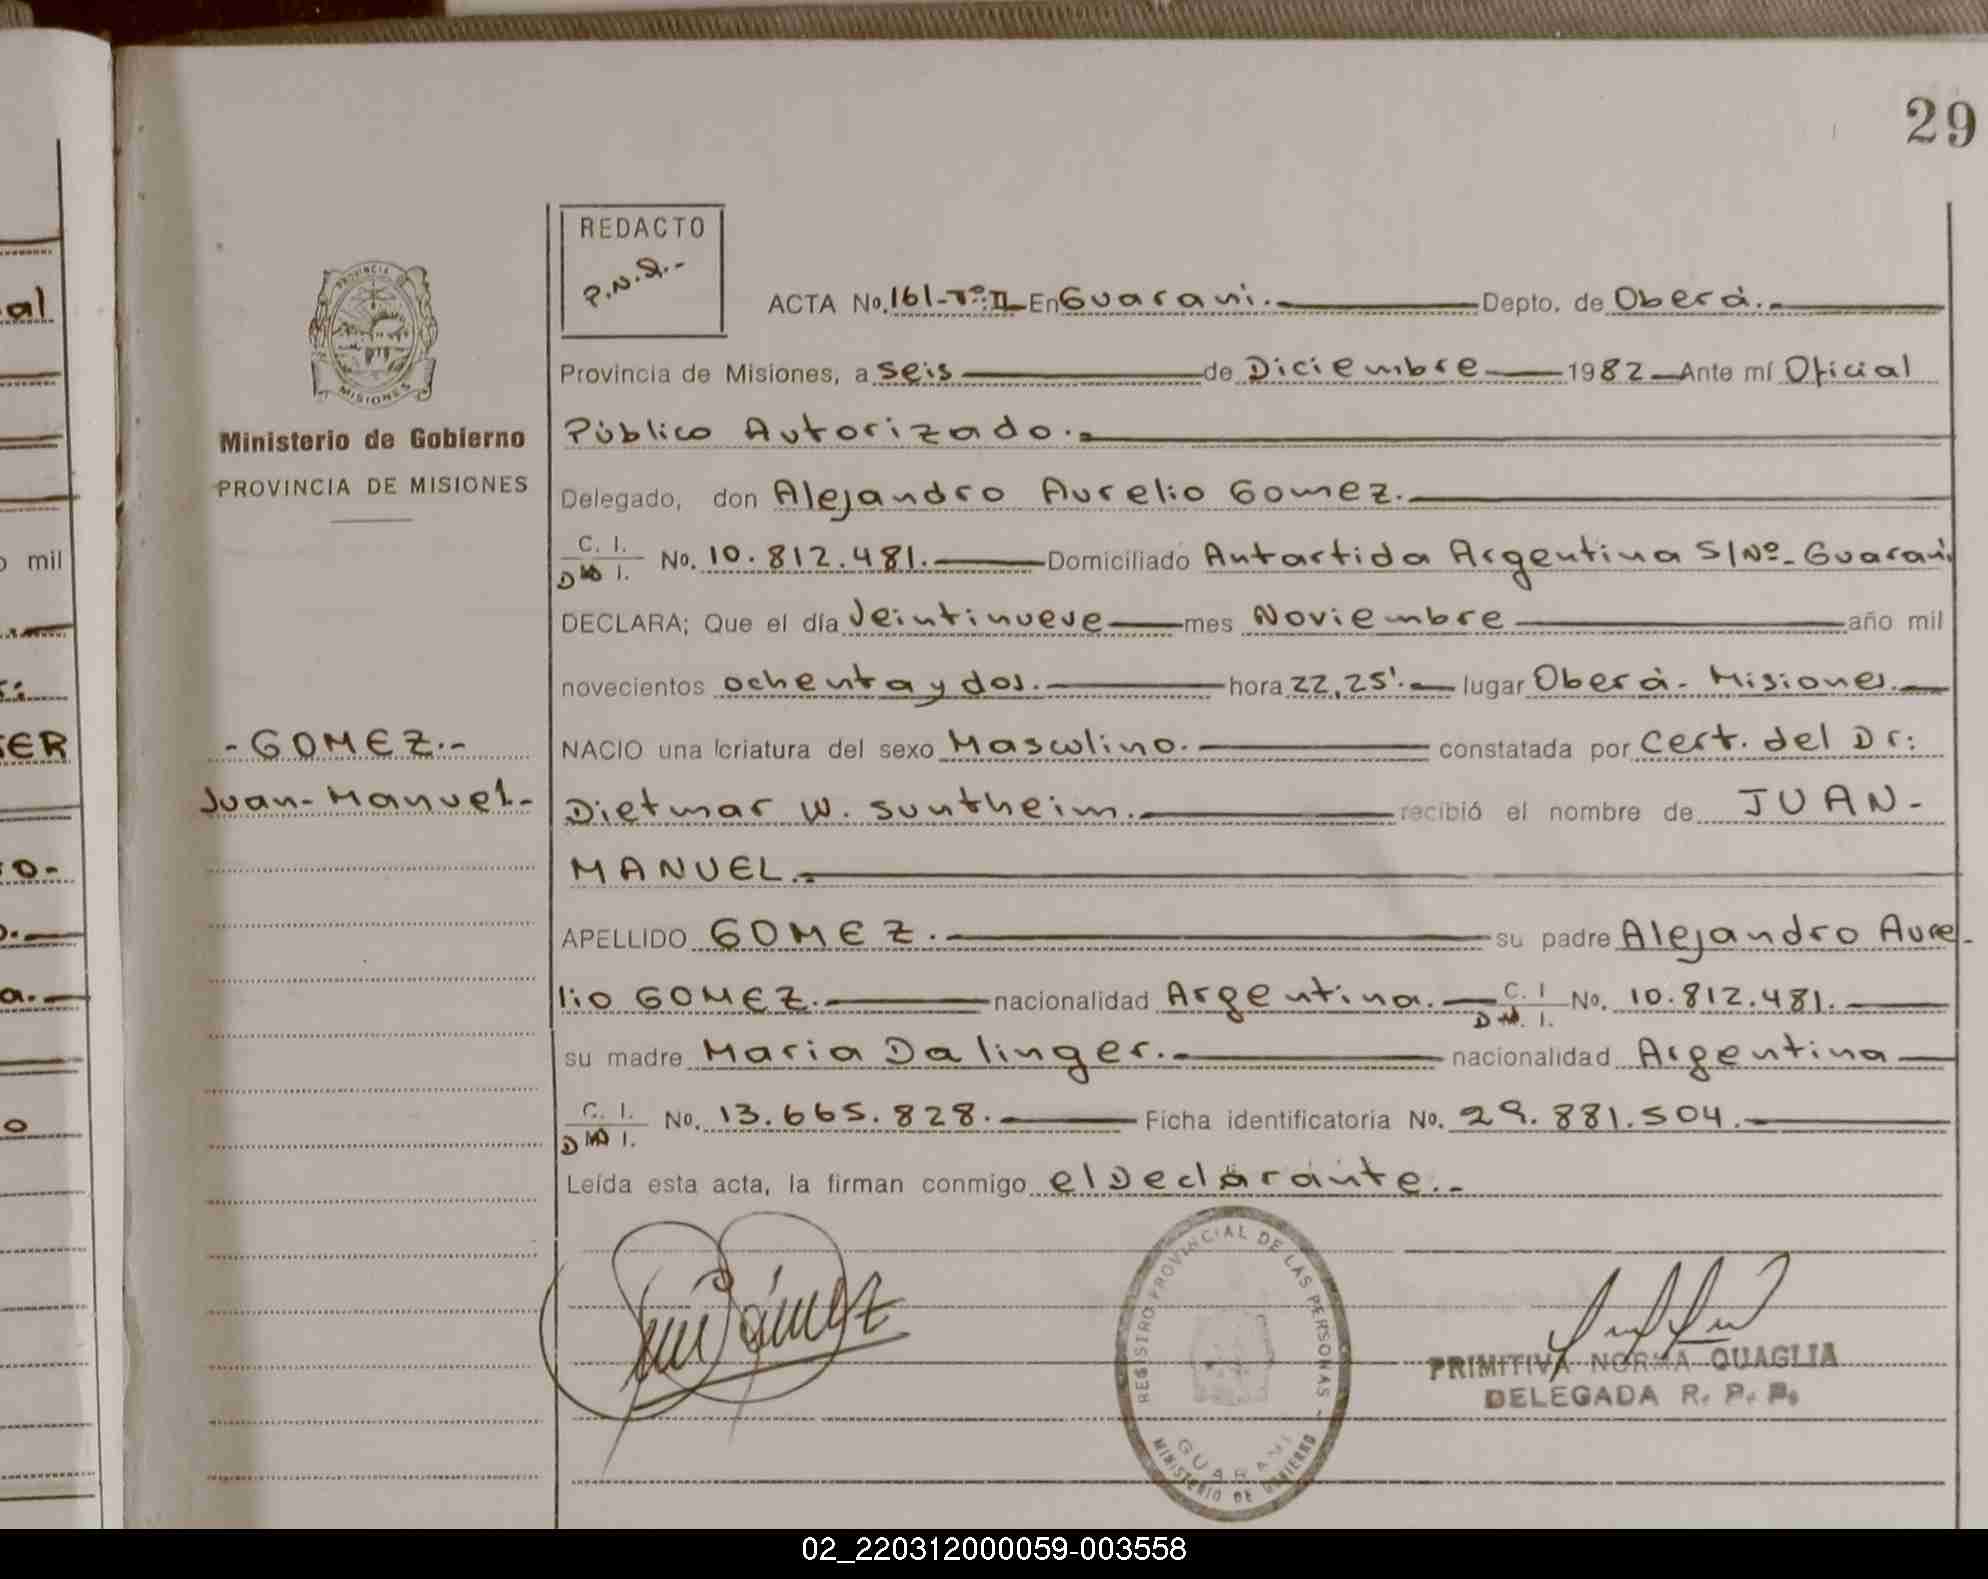 29
REDACTO
P.N.Q.-
ACTA No. 161-Tº:II- En Guaraní.- Depto. de Oberá.-
Provincia de Misiones, a seis de Diciembre 1982 Ante mí Oficial
Público Autorizado.-
Delegado, don Alejandro Aurelio Gomez.
C. I.
D N I. No. 10.812.481. Domiciliado Antartida Argentina S/Nº- Guaraní
DECLARA; Que el día Veintinueve mes Noviembre año mil
novecientos ochenta y dos. hora 22,25'.- lugar Oberá- Misiones.
NACIO una criatura del sexo Masculino. constatada por Cert. del Dr:
Dietmar W. Suntheim. recibió el nombre de JUAN-
MANUEL.-
APELLIDO GOMEZ. su padre Alejandro Aure-
lio GOMEZ. nacionalidad Argentina. C. I
D N. I. No. 10.812.481.
su madre Maria Dalinger.- nacionalidad Argentina
C. I.
D N I. No. 13.665.828. Ficha identificatoria No. 29.881.504.
Leída esta acta, la firman conmigo el Declarante.-
PROVINCIA DE
MISIONES
Ministerio de Gobierno
PROVINCIA DE MISIONES
-GOMEZ.-
Juan-Manuel-
REGISTRO PROVINCIAL DE LAS PERSONAS -
GUARANI
MINISTERIO DE GOBIERNO
PRIMITIVA NORMA QUAGLIA
DELEGADA R. P. P.
al
o mil
ER
o-
a.
o
02_220312000059-003558